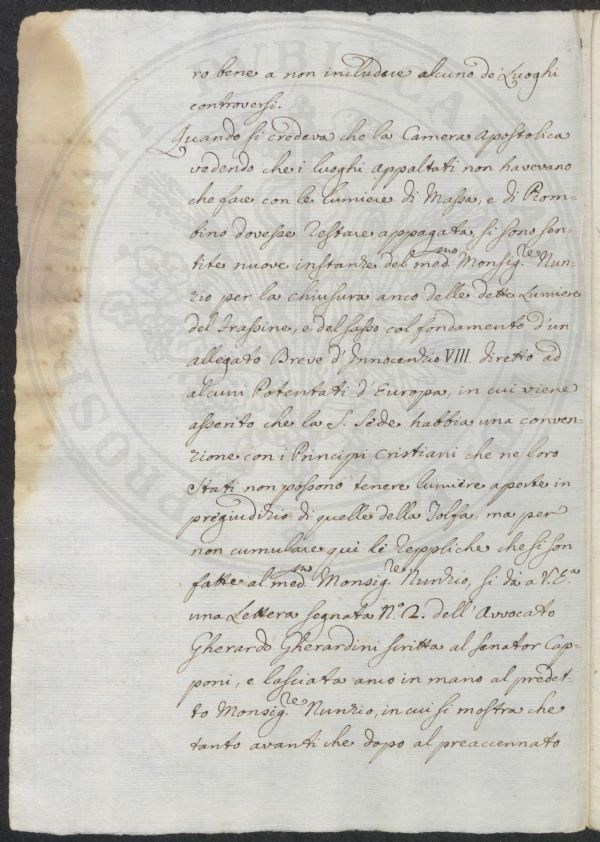 ro bene a non includere alcuno de Luoghi
controversi.
Quando si credeva che la Camera Apostolica
vedendo che i luoghi appaltati non havevano
che fare con le lumiere di Massa, e di Piom-
bino dovesse restare appagata, si sono sen-
tite nuove instanze del med.mo Monsig.re Nun-
zio per la chiusura anco delle dette Lumiere
del Frassine, e del sasso col fondamento d'un
allegato Breve d'Innocenzio VIII. diretto ad
alcuni Potentati d'Europa, in cui viene
asserito che la S. Sede habbia una conven-
zione con i Principi Cristiani che ne loro
Stati non possono tenere lumiere aperte in
pregiudizio di quelle della Tolfa, ma per
non cumulare qui le reppliche che si son
fatte al med.mo Monsig.re Nunzio, si dà a V.E.a
una Lettera segnata N.o 2. dell'Avvocato
Gherardo Gherardini scritta al senator Cap-
poni, e lasciata anco in mano al predet-
to Monsig.re Nunzio, in cui si mostra che
tanto avanti che dopo al preaccennato